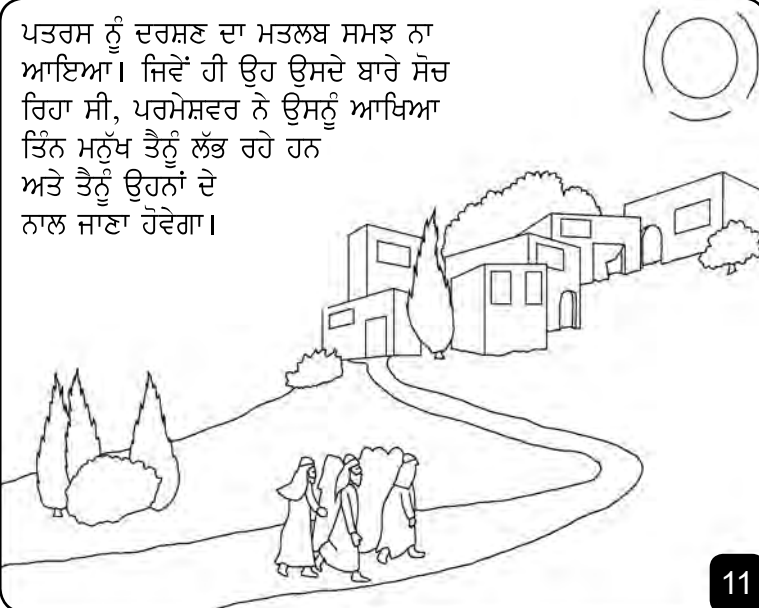 ਪਤਰਸ ਨੂੰ ਦਰਸ਼ਣ ਦਾ ਮਤਲਬ ਸਮਝ ਨਾ
ਆਇਆ। ਜਿਵੇਂ ਹੀ ਉਹ ਉਸਦੇ ਬਾਰੇ ਸੋਚ
ਰਿਹਾ ਸੀ, ਪਰਮੇਸ਼ਵਰ ਨੇ ਉਸਨੂੰ ਆਖਿਆ
ਤਿੰਨ ਮਨੁੱਖ ਤੈਨੂੰ ਲੱਭ ਰਹੇ ਹਨ
ਅਤੇ ਤੈਨੂੰ ਉਹਨਾਂ ਦੇ
ਨਾਲ ਜਾਣਾ ਹੋਵੇਗਾ।
11